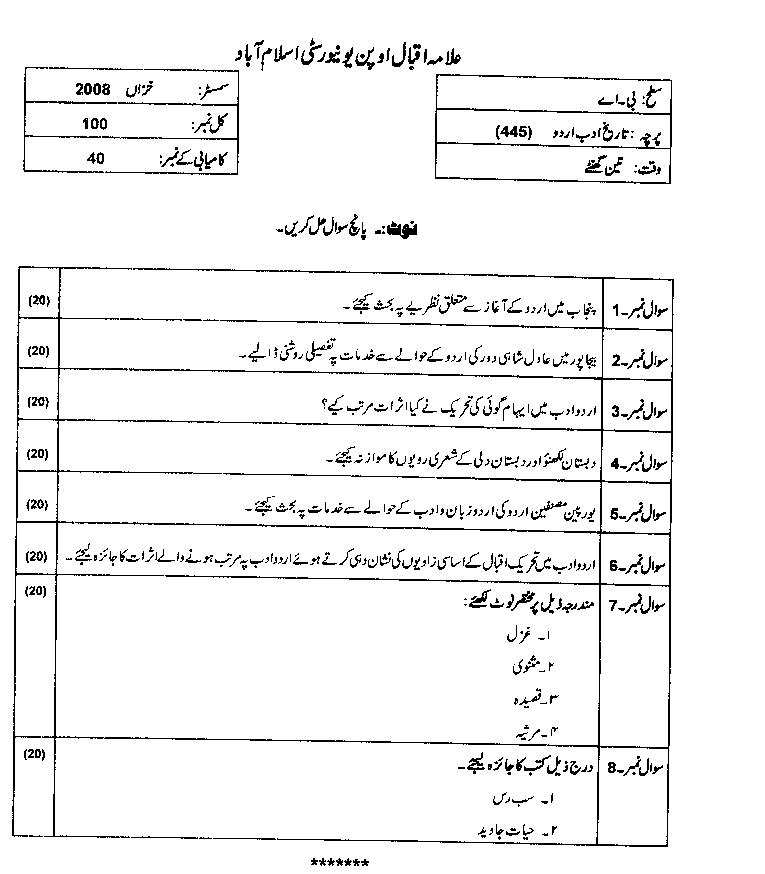 علامہ اقبال اوپن یونیورسٹی اسلام آباد
سطح: بی۔اے
پرچہ: تاریخ ادب اردو (445)
وقت: تین گھنٹے
سمسٹر: خزاں 2008
کل نمبر: 100
کامیابی کے نمبر: 40
نوٹ:۔ پانچ سوال حل کریں۔
سوال نمبر۔1 پنجاب میں اردو کے آغاز سے متعلق نظریے پہ بحث کیجئے۔ (20)
سوال نمبر۔2 بیجاپور میں عادل شاہی دور کی اردو کے حوالے سے خدمات پہ تفصیلی روشنی ڈالیے۔ (20)
سوال نمبر۔3 اردو ادب میں ایہام گوئی کی تحریک نے کیا اثرات مرتب کیے؟ (20)
سوال نمبر۔4 دبستان لکھنؤ اور دبستان دلی کے شعری رویوں کا موازنہ کیجئے۔ (20)
سوال نمبر۔5 یورپین مصنفین اردو کی اردو زبان و ادب کے حوالے سے خدمات پہ بحث کیجئے۔ (20)
سوال نمبر۔6 اردو ادب میں تحریک اقبال کے اساسی زاویوں کی نشان دہی کرتے ہوئے اردو ادب پہ مرتب ہونے والے اثرات کا جائزہ لیجئے۔ (20)
سوال نمبر۔7 مندرجہ ذیل پر مختصر نوٹ لکھئے: (20)
۱۔ غزل
۲۔ مثنوی
۳۔ قصیدہ
۴۔ مرثیہ
سوال نمبر۔8 درج ذیل کتب کا جائزہ لیجئے۔ (20)
۱۔ سب رس
۲۔ حیات جاوید
*******